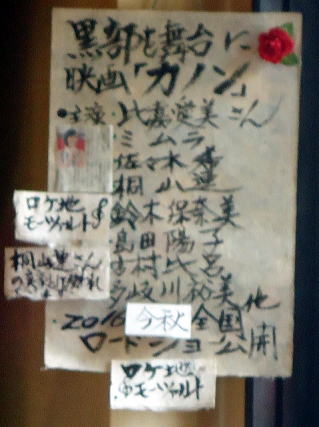 黒部を舞台に
映画「カノン」
・主演・比嘉愛美さん
ミムラ
佐々木希
桐山漣
鈴木保奈美
島田陽子
古村比呂
多岐川裕美他
・2016今秋全国
ロードショー公開
ロケ地
モーツァルト
桐山漣さん
ロケ地
モーツァルト